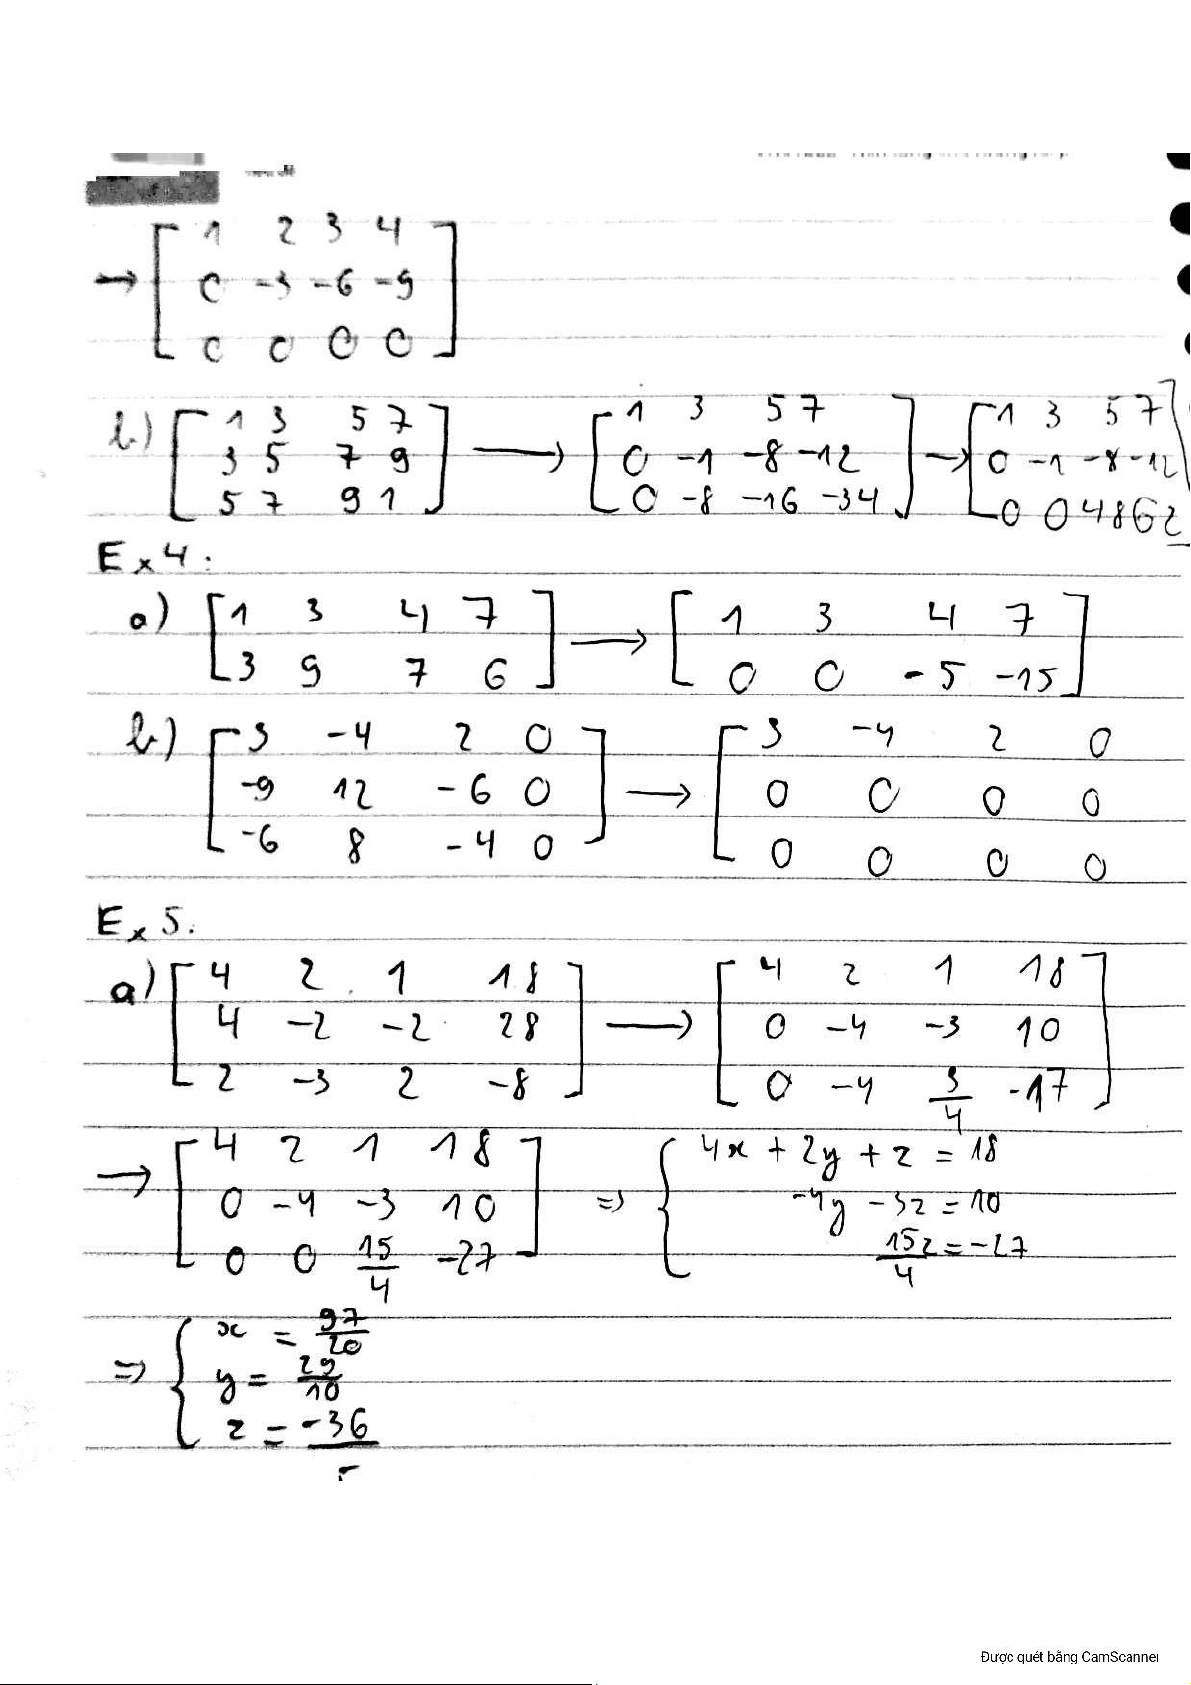 → [ 1 2 3 4
0 -3 -6 -9
0 0 0 0 ]
b) [ 1 3 5 7
3 5 7 9
5 7 9 1 ] → [ 1 3 5 7
0 -1 -8 -12
0 -8 -16 -34 ] → [ 1 3 5 7
0 -1 -8 -12
0 0 48 62 ]
Ex 4:
a) [ 1 3 4 7
3 9 7 6 ] → [ 1 3 4 7
0 0 -5 -15 ]
b) [ 3 -4 2 0
-9 12 -6 0
-6 8 -4 0 ] → [ 3 -4 2 0
0 0 0 0
0 0 0 0
Ex 5:
a) [ 4 2 1 18
4 -2 -2 28
2 -3 2 -8 ] → [ 4 2 1 18
0 -4 -3 10
0 -4 3/4 -17 ]
→ [ 4 2 1 18
0 -4 -3 10
0 0 15/4 -27 ] => { 4x + 2y + z = 18
-4y - 3z = 10
15z/4 = -27
=> { x = 97/20
y = 29/10
z = -36/5
Được quét bằng CamScanner